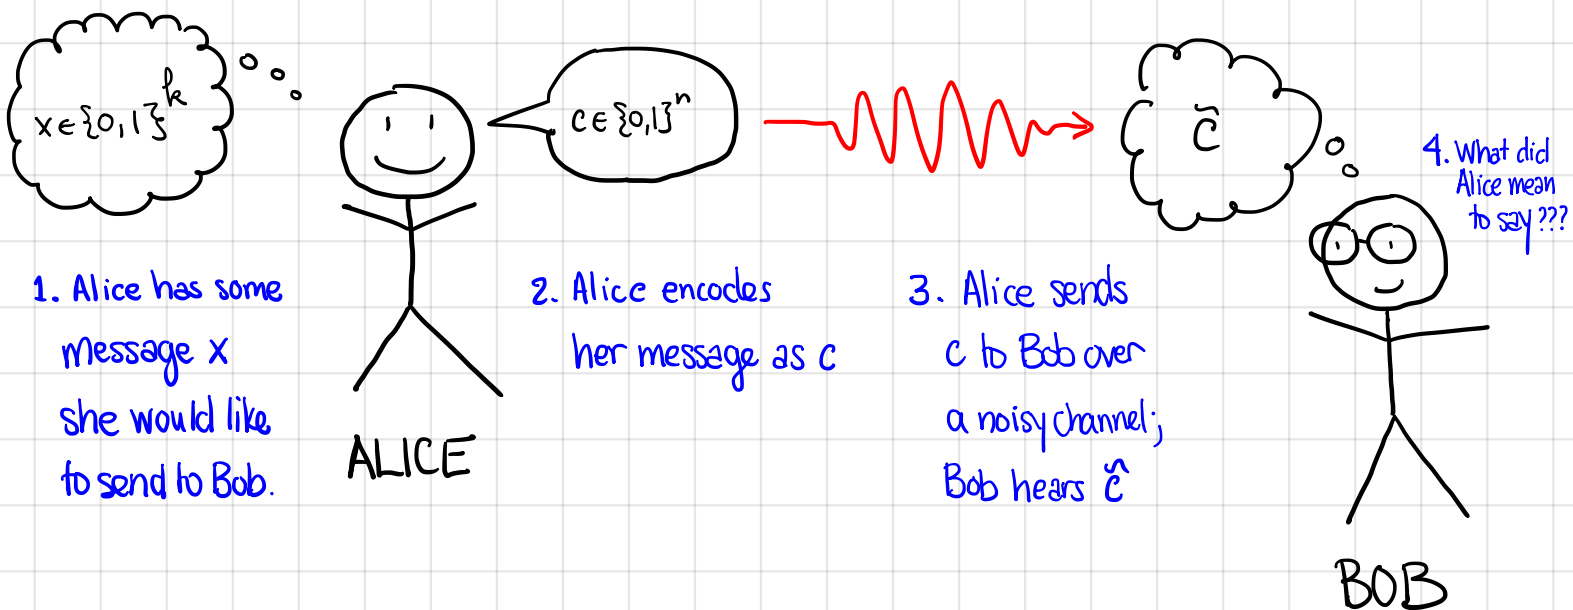 x∈{0,1}^k
c∈{0,1}^n
c̃
4. What did
Alice mean
to say???
1. Alice has some
message x
she would like
to send to Bob.
2. Alice encodes
her message as c
3. Alice sends
c to Bob over
a noisy channel;
Bob hears c̃
ALICE
BOB